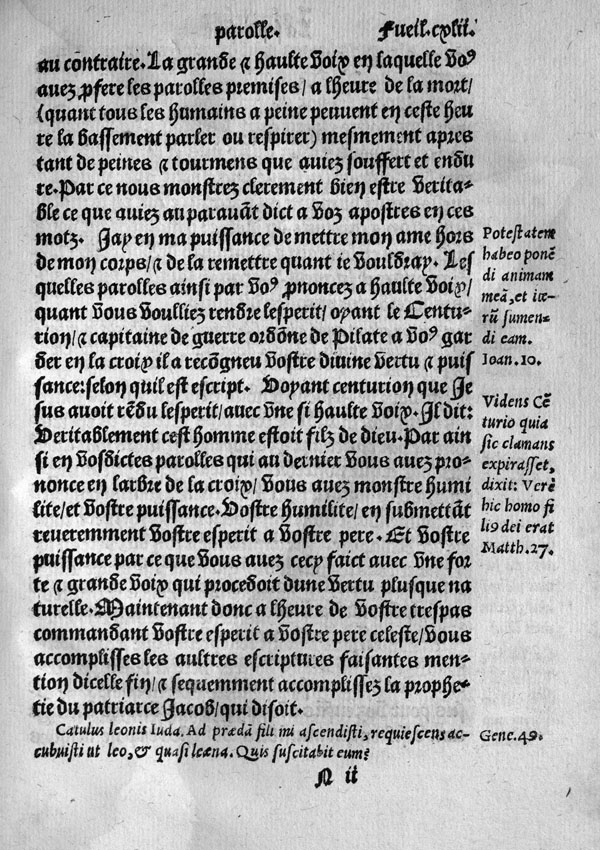 parolle. Fueil. cxlii.
au contraire. La grande & haulte voix en laquelle voꝰ
auez ꝓfere les parolles premises/ a lheure de la mort/
(quant tous les humains a peine peuuent en ceste heu
re la bassement parler ou respirer) mesmement apres
tant de peines & tourmens que auiez souffert et endu
re. Par ce nous monstrez clerement bien estre verita-
ble ce que auiez au parauāt dict a voz apostres en ces
motz. Jay en ma puissance de mettre mon ame hors
de mon corps/ & de la remettre quant ie vouldray. Les
quelles parolles ainsi par voꝰ ꝓnoncez a haulte voix/
quant vous voulliez rendre lesperit/ oyant le Centu-
rion/ & capitaine de guerre ordōne de Pilate a voꝰ gar
der en la croix il a recōgneu vostre diuine vertu & puis
sance: selon quil est escript. Voyant centurion que Je
sus auoit rēdu lesperit/ auec vne si haulte voix. Il dit:
Veritablement cest homme estoit filz de dieu. Par ain
si en vosdictes parolles qui au dernier vous auez pro-
nonce en larbre de la croix/ vous auez monstre humi
lite/ et vostre puissance. Vostre humilite/ en submettāt
reueremment vostre esperit a vostre pere. Et vostre
puissance par ce que vous auez cecy faict auec vne for
te & grande voix qui procedoit dune vertu plusque na
turelle. Maintenant donc a lheure de vostre trespas
commandant vostre esperit a vostre pere celeste/ vous
accomplisses les aultres escriptures faisantes men-
tion dicelle fin/ & sequemment accomplissez la prophe-
tie du patriarce Jacob/ qui disoit.
Catulus leonis Iuda. Ad prædā fili mi ascendisti, requiescens ac-
cubuisti ut leo, & quasi leæna. Quis suscitabit eum?
N ii
Potestatem
habeo ponē
di animam
meā, et ite-
rū sumen-
di eam.
Ioan. 10.
Videns Cē
turio quia
sic clamans
expirasset,
dixit: Verè
hic homo fi
liꝰ dei erat
Matth. 27.
Gene. 49.